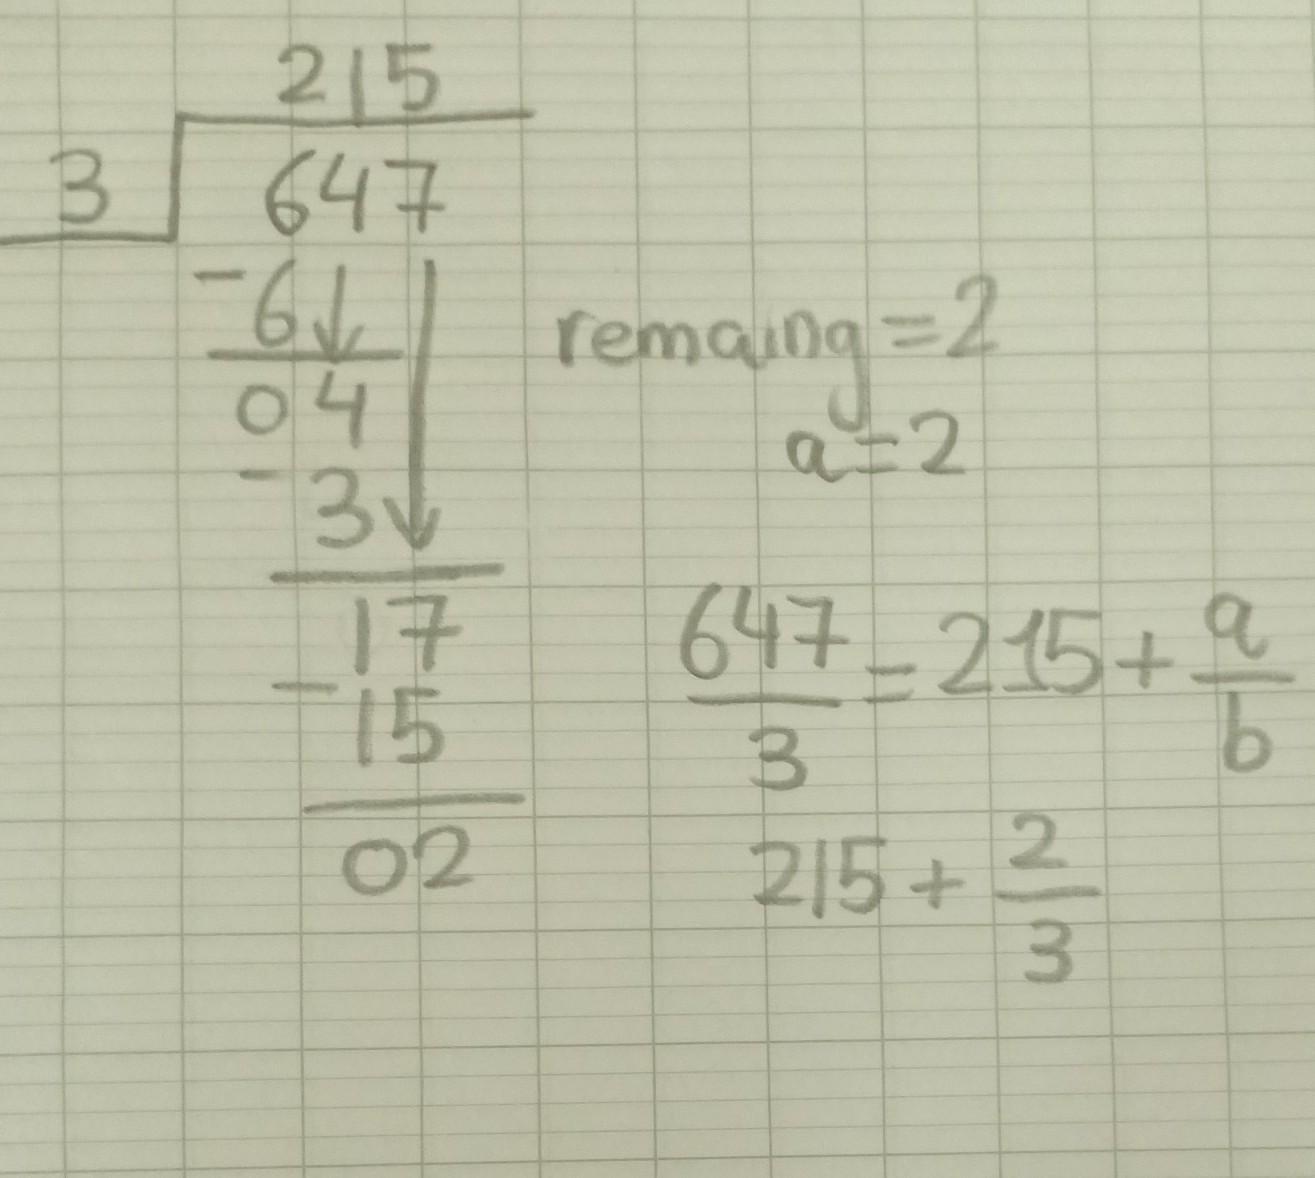 215
3 647
-6↓
04
- 3↓
17
-15
02
remaing=2
a=2
647/3 = 215 + a/b
215 + 2/3